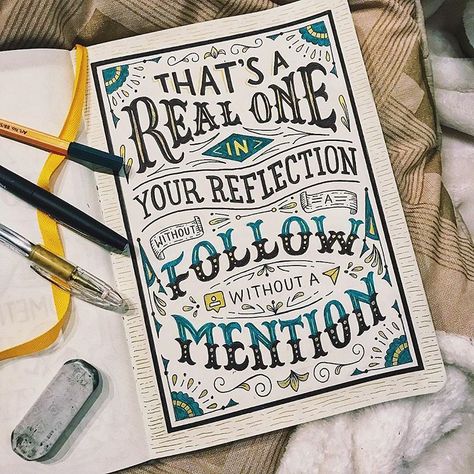 THAT'S A
REAL ONE
IN
YOUR REFLECTION
WITHOUT A
FOLLOW
WITHOUT A
MENTION